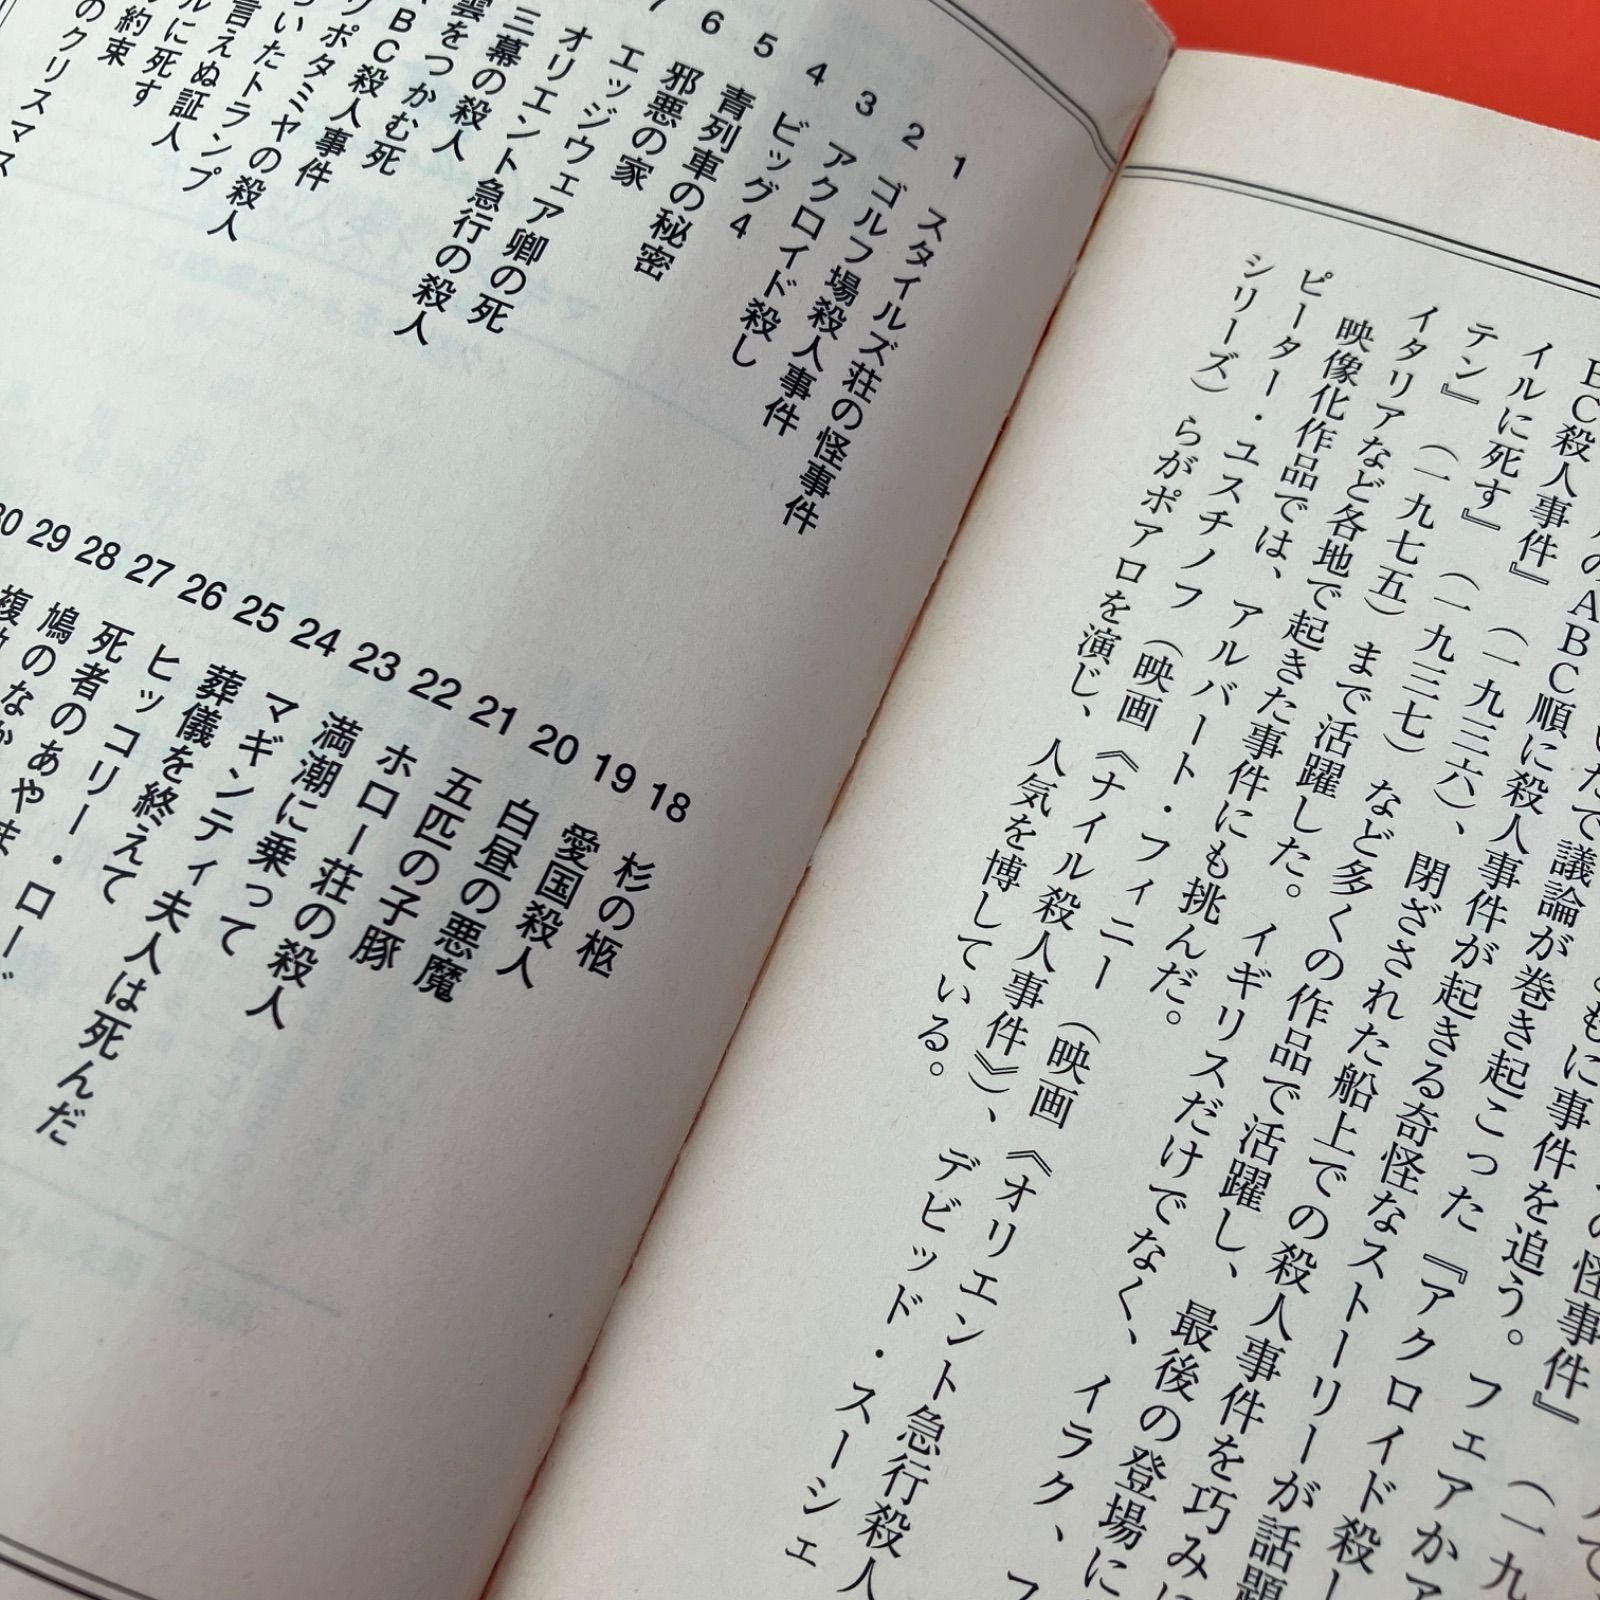 の怪事件』（一九
もに事件を追う。フェアかア
で議論が巻き起こった『アクロイド殺し
のＡＢＣ順に殺人事件が起きる奇怪なストーリーが話題
ＢＣ殺人事件』（一九三六）、閉ざされた船上での殺人事件を巧みに
イルに死す』（一九三七）など多くの作品で活躍し、最後の登場に
テン』（一九七五）まで活躍した。イギリスだけでなく、イラク、フ
イタリアなど各地で起きた事件にも挑んだ。
映像化作品では、アルバート・フィニー（映画《オリエント急行殺人
ピーター・ユスチノフ（映画《ナイル殺人事件》）、デビッド・スーシェ
シリーズ）らがポアロを演じ、人気を博している。
1 スタイルズ荘の怪事件
2 ゴルフ場殺人事件
3 アクロイド殺し
4 ビッグ4
5 青列車の秘密
6 邪悪の家
7 エッジウェア卿の死
オリエント急行の殺人
三幕の殺人
雲をつかむ死
ＢＣ殺人事件
ポタミヤの殺人
いたトランプ
言えぬ証人
ルに死す
約束
のクリスマス
18 杉の柩
19 愛国殺人
20 白昼の悪魔
21 五匹の子豚
22 ホロー荘の殺人
23 満潮に乗って
24 マギンティ夫人は死んだ
25 葬儀を終えて
26 ヒッコリー・ロード
27 死者のあやま
28 鳩のなか
29 複
30